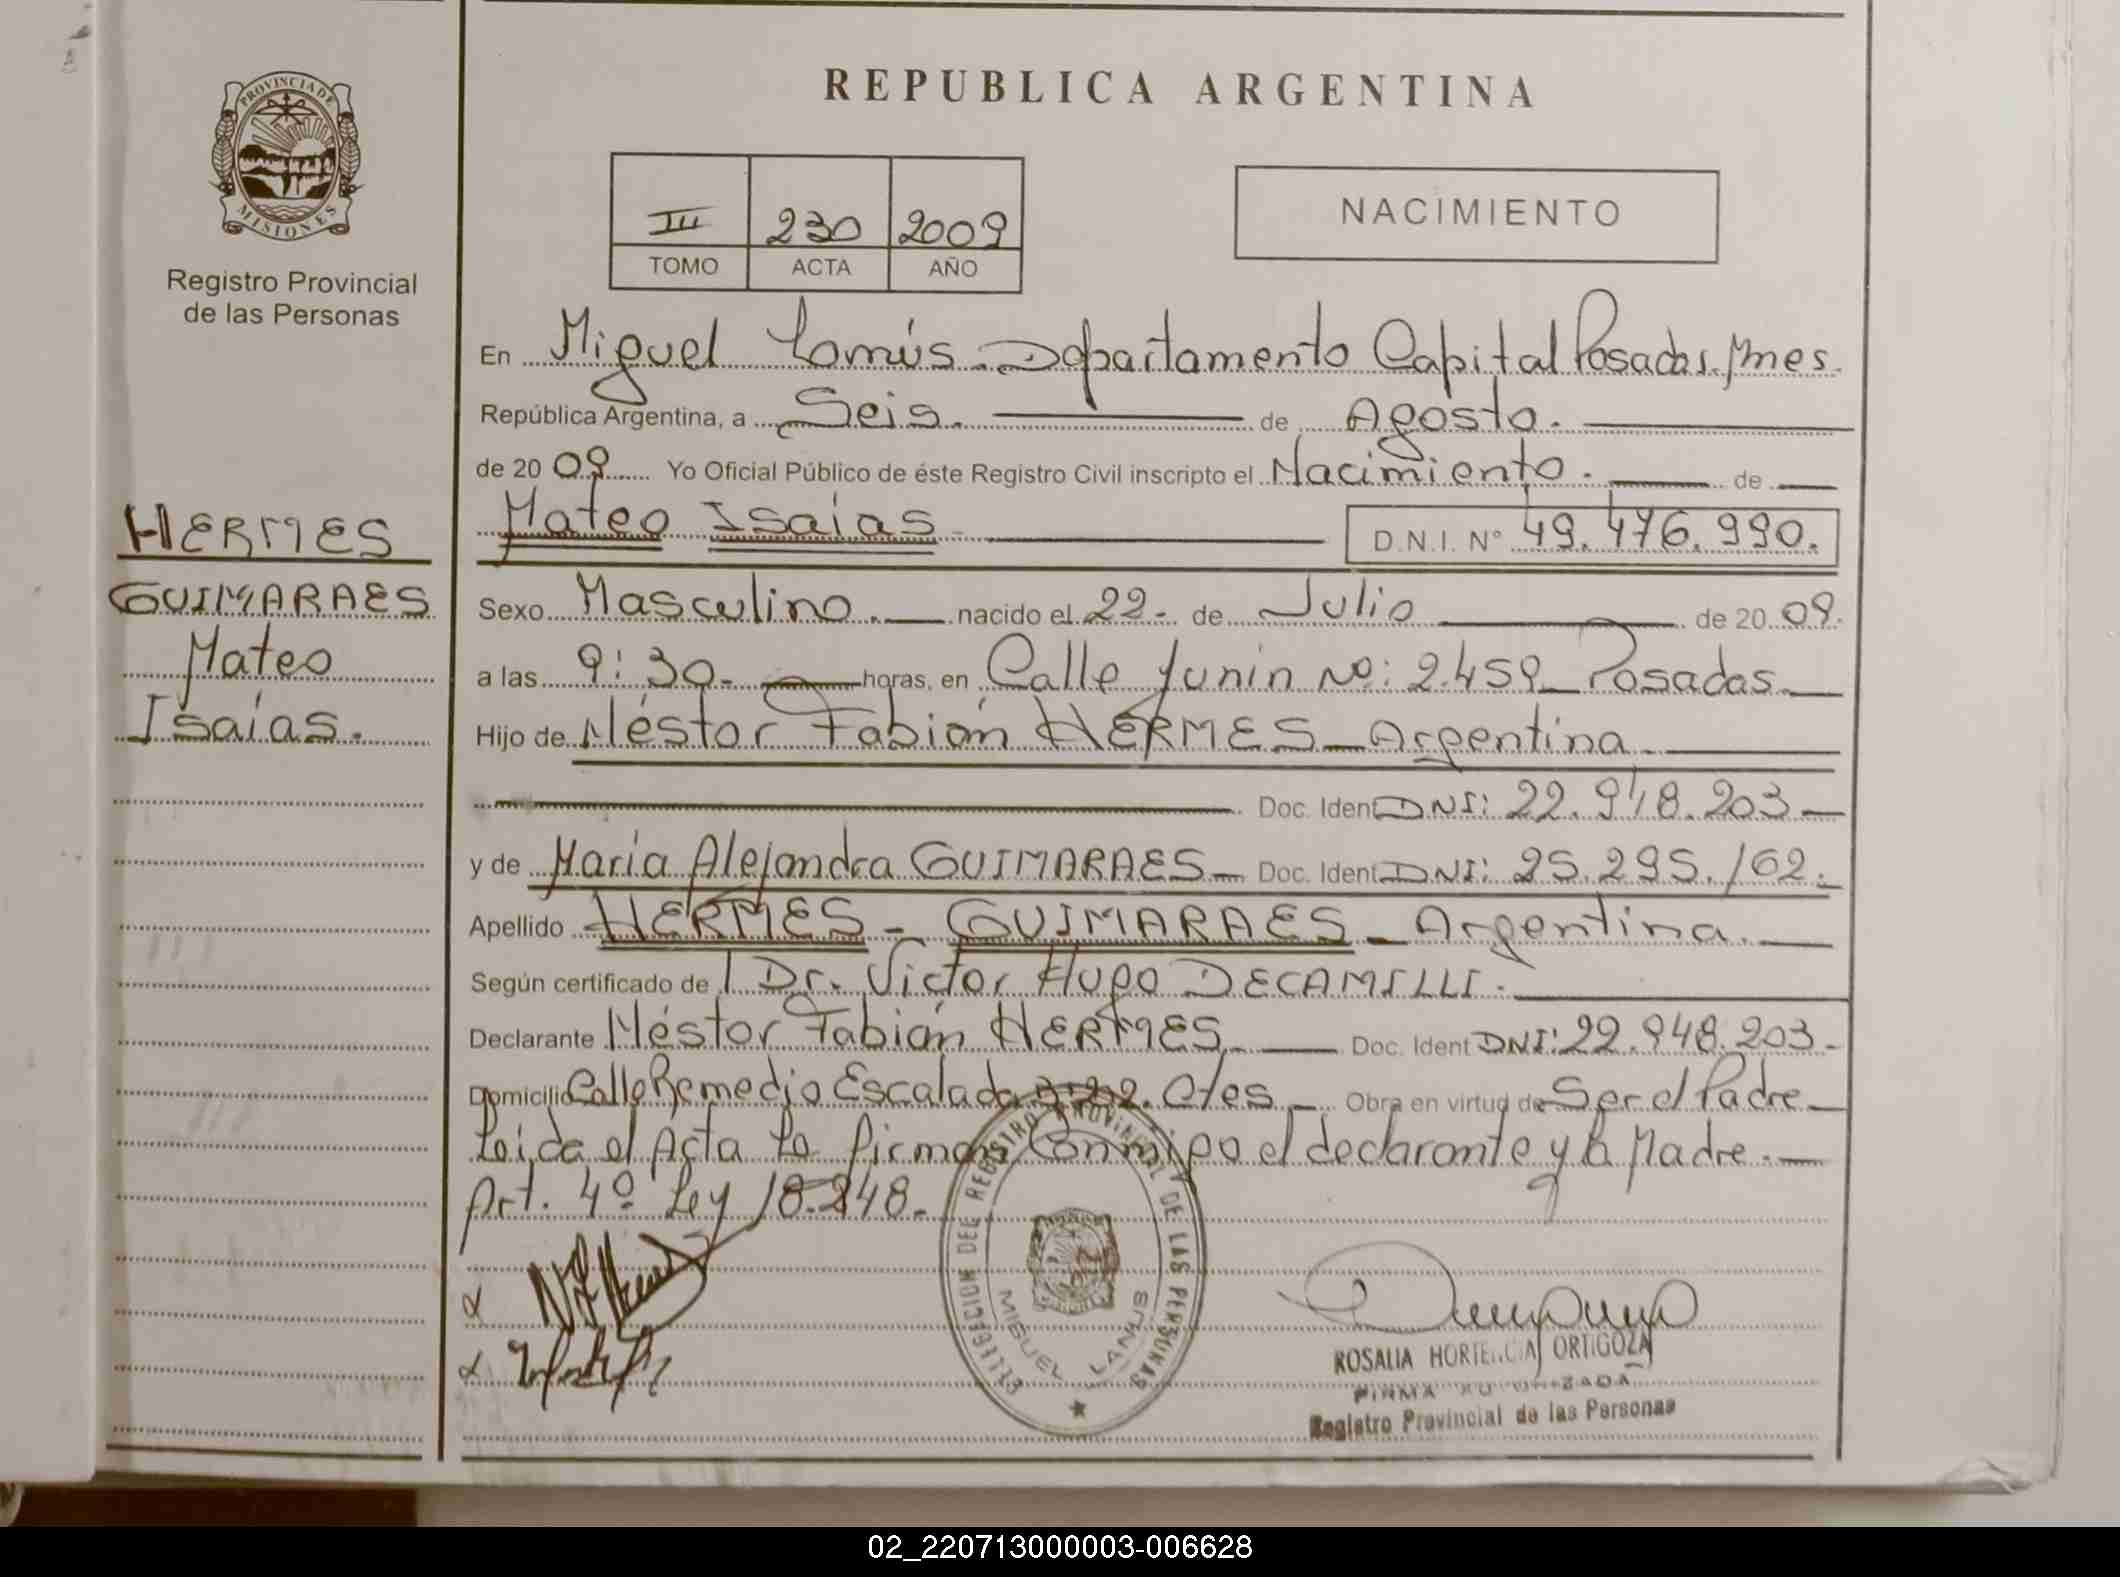 REPUBLICA ARGENTINA
PROVINCIA DE
MISIONES
Registro Provincial
de las Personas
III 230 2009
TOMO ACTA AÑO
NACIMIENTO
En Miguel Lanús - Departamento Capital Posadas. Mnes.
República Argentina, a Seis. de Agosto.
de 20 09 Yo Oficial Público de éste Registro Civil inscripto el Nacimiento. de
Mateo Isaías D.N.I. Nº 49.476.990.
HERMES
GUIMARAES
Mateo
Isaías.
Sexo Masculino. nacido el 22. de Julio de 20 09.
a las 9:30. horas, en Calle Junín Nº: 2.459 - Posadas.
Hijo de Néstor Fabián HERMES - Argentina.
Doc. Ident DNI: 22.948.203
y de María Alejandra GUIMARAES - Doc. Ident DNI: 25.295.162.
Apellido HERMES - GUIMARAES - Argentina.
Según certificado de l Dr. Victor Hugo DECAMILLI.
Declarante Néstor Fabián HERMES Doc. Ident DNI: 22.948.203.
Domicilio Calle Remedio Escalada Ctes. Obra en virtud de Ser el Padre
Leída el Acta La firman Conmigo el declarante y la Madre.
Art. 4º Ley 18.248.
DELEGACION DEL REGISTRO PROVINCIAL DE LAS PERSONAS
MIGUEL LANUS
ROSALIA HORTENCIA ORTIGOZA
FIRMA AUTORIZADA
Registro Provincial de las Personas
02_220713000003-006628